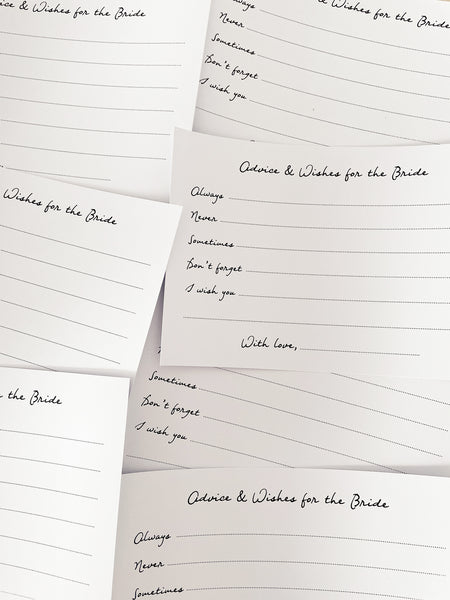 & Wishes for the Bride
Always
for the Bride
Never
Sometimes
Don't forget
I wish you
Advice & Wishes for the Bride
Always
Never
Sometimes
Don't forget
I wish you
With love,
Wishes for the Bride
the Bride
Sometimes
Don't forget
I wish you
Advice & Wishes for the Bride
Always
Never
Sometimes